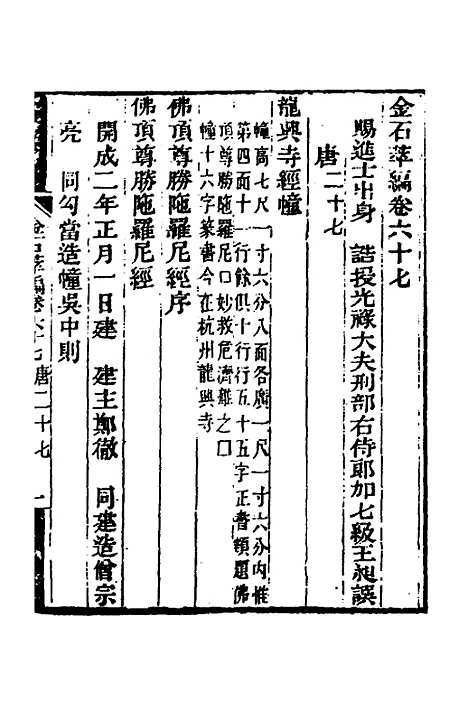 金石萃編卷六十七
賜進士出身 誥授光祿大夫刑部右侍郎加七級王昶譔
唐二十七
龍興寺經幢
幢高七尺一寸六分八面各廣一尺一寸六分內惟
第四面十一行餘俱十行行五十五字正書額題佛
頂尊勝陁羅尼口妙救危濟難之口
幢十六字篆書今在杭州龍興寺
佛頂尊勝陁羅尼經序
佛頂尊勝陁羅尼經
開成二年正月一日建 建主鄭徹 同建造僧宗
亮 同勾當造幢吳中則
金石萃編卷六十七 唐二十七 一